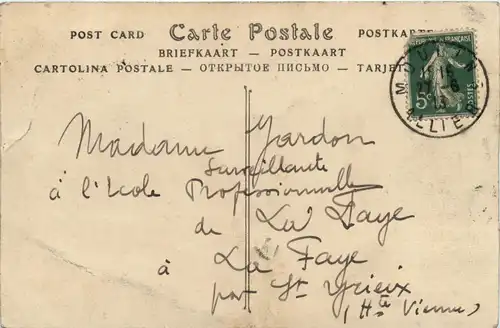 POST CARD Carte Postale POSTKARTE
BRIEFKAART — POSTKAART
CARTOLINA POSTALE — ОТКРЫТОЕ ПИСЬМО — TARJE
POSTES
5c
MOULINS
18
27 -8
13
ALLIER
Madame Jardon
Surveillante
à l'Ecole Professionnelle
de La Faye
à La Faye
par St Yrieix
(Hte Vienne)